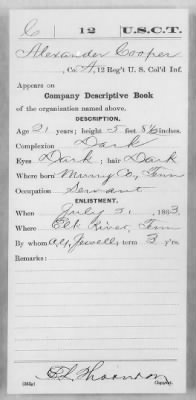 C | 12 | U.S.C.T.
Alexander Cooper
, Co. A, 12 Reg't U. S. Col'd Inf.
Appears on
Company Descriptive Book
of the organization named above.
DESCRIPTION.
Age 21 years; height 5 feet 8½ inches.
Complexion Dark
Eyes Dark; hair Dark
Where born Murry Co, Tenn
Occupation Servant
ENLISTMENT.
When July 21, 1863.
Where Elk River, Tenn
By whom A. G. Jewell; term 3 y'rs.
Remarks:
Copyist.